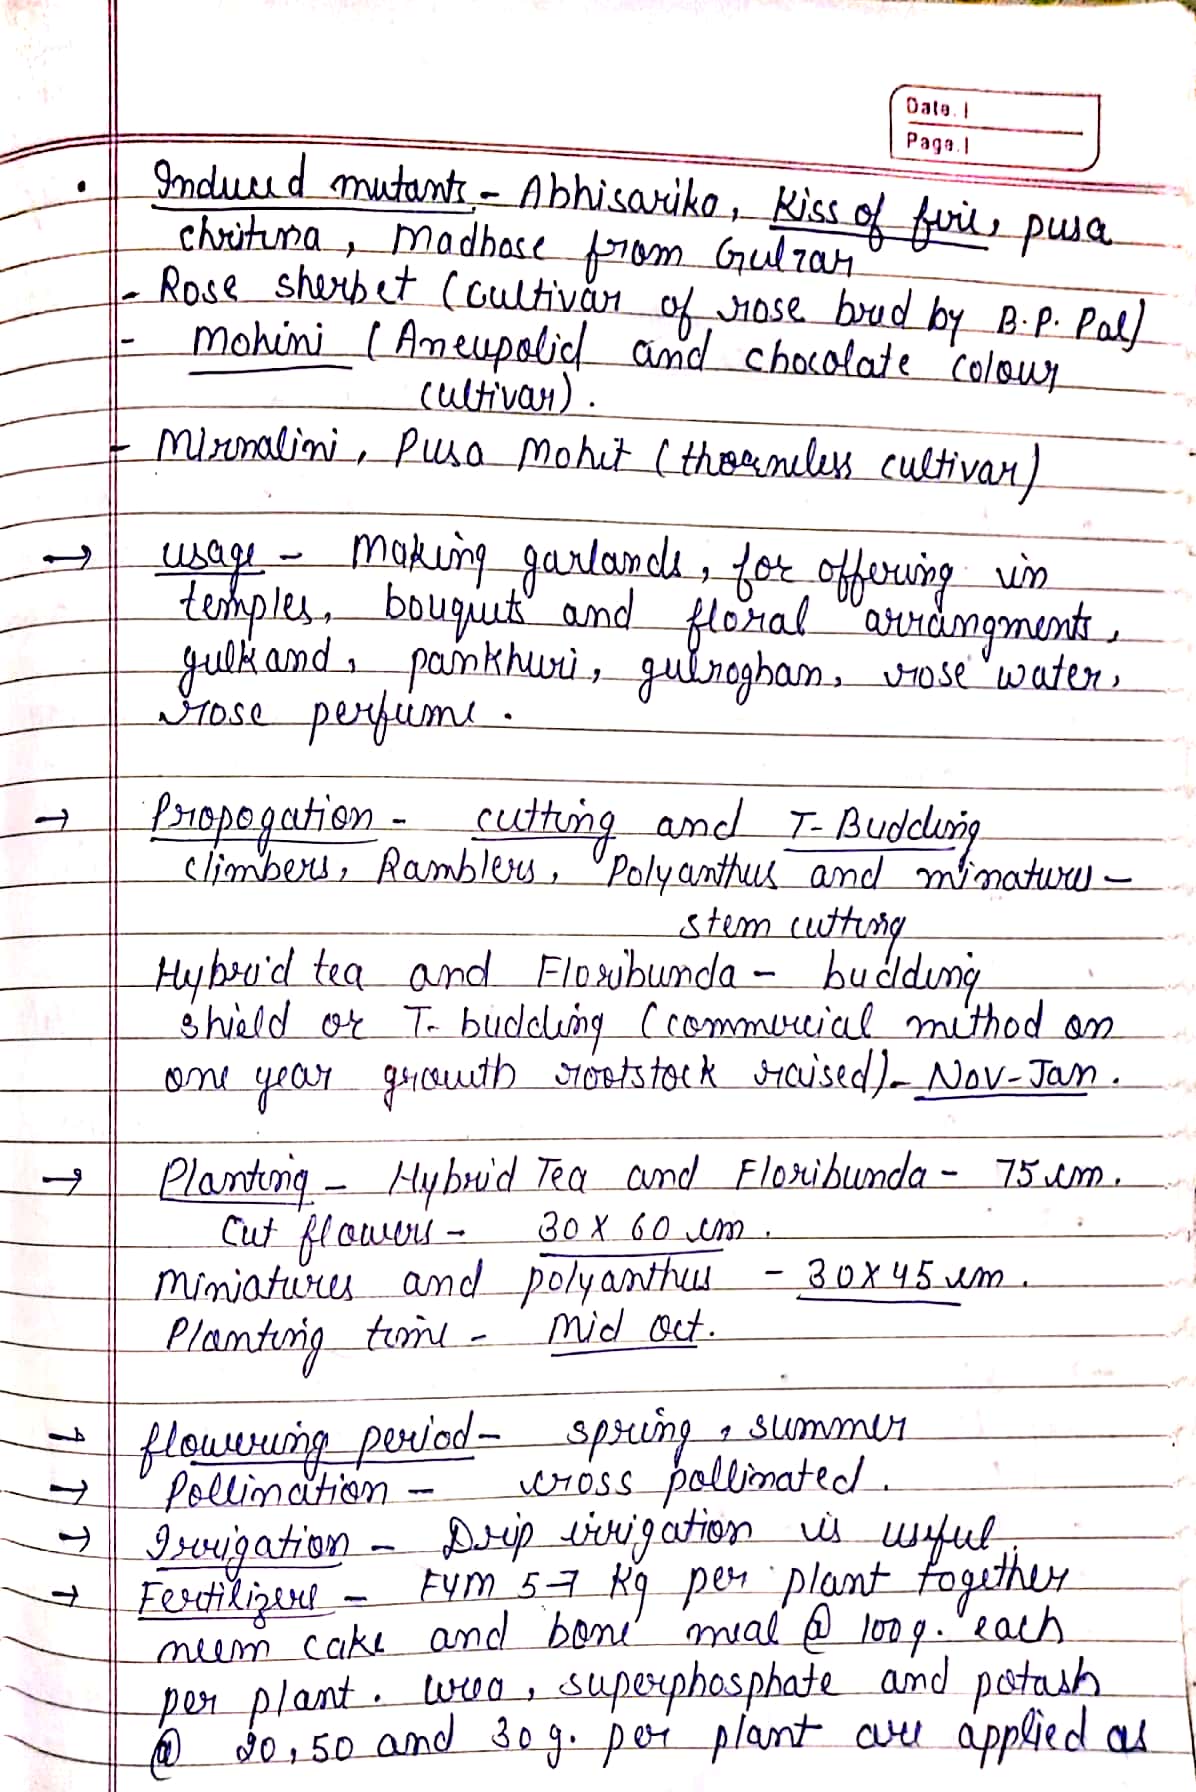 Date.
Page.
• Induced mutants - Abhisarika, Kiss of fire, pusa
christina, Madhose from Gulzar
- Rose sherbet (cultivar of rose bred by B.P. Pal)
- Mohini (Aneupolid and chocolate colour
cultivar).
- Mirnalini, Pusa Mohit (thornless cultivar)
→ usage - Making garlands, for offering in
temples, bouquets and floral arrangments,
gulkand, pankhuri, gulroghan, rose water,
rose perfume.
→ Propogation - cutting and T-Budding
climbers, Ramblers, Polyanthus and minatures -
stem cutting
Hybrid tea and Floribunda - budding
shield or T- budding (commercial method on
one year growth rootstock raised) - Nov-Jan.
→ Planting - Hybrid Tea and Floribunda - 75 cm.
Cut flowers - 30 X 60 cm.
miniatures and polyanthus - 30X45 cm.
Planting time - Mid Oct.
→ flowering period - spring, summer
→ Pollination - cross pollinated.
→ Irrigation - Drip irrigation is useful.
→ Fertilizers - FYM 5-7 Kg per plant together
neem cake and bone meal @ 100 g. each
per plant. Urea, superphosphate and potash
@ 20, 50 and 30 g. per plant are applied as